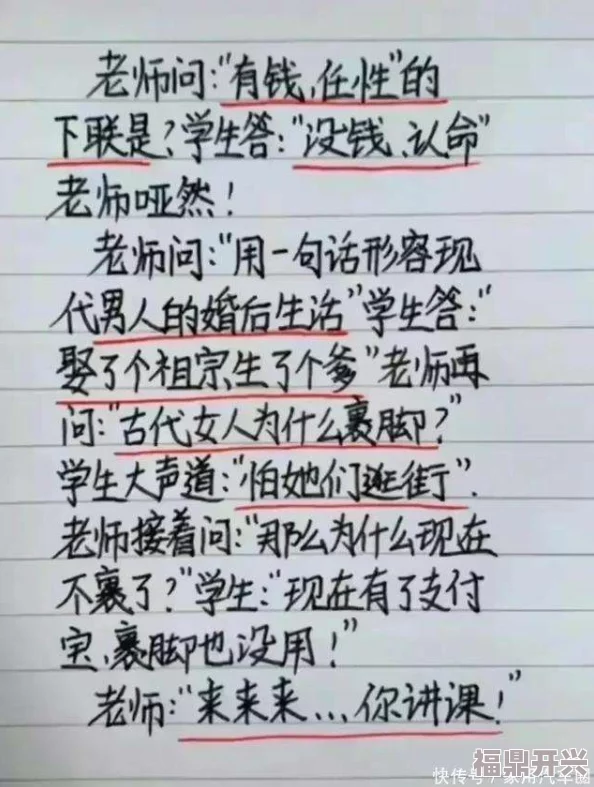 老师问:"有钱、任性"的
下联是?学生答:"没钱、认命"
老师哑然!
老师问:"用一句话形容现
代男人的婚后生活"学生答:"
娶了个祖宗,生了个爹"老师再
问:"古代女人为什么裹脚?"
学生大声道:"怕她们逛街".
老师接着问:"那么为什么现在
不裹了?"学生:"现在有了支付
宝,裹脚也没用!"
老师:"来来来...你讲课!"
福鼎开兴
快传号/家用汽车圈